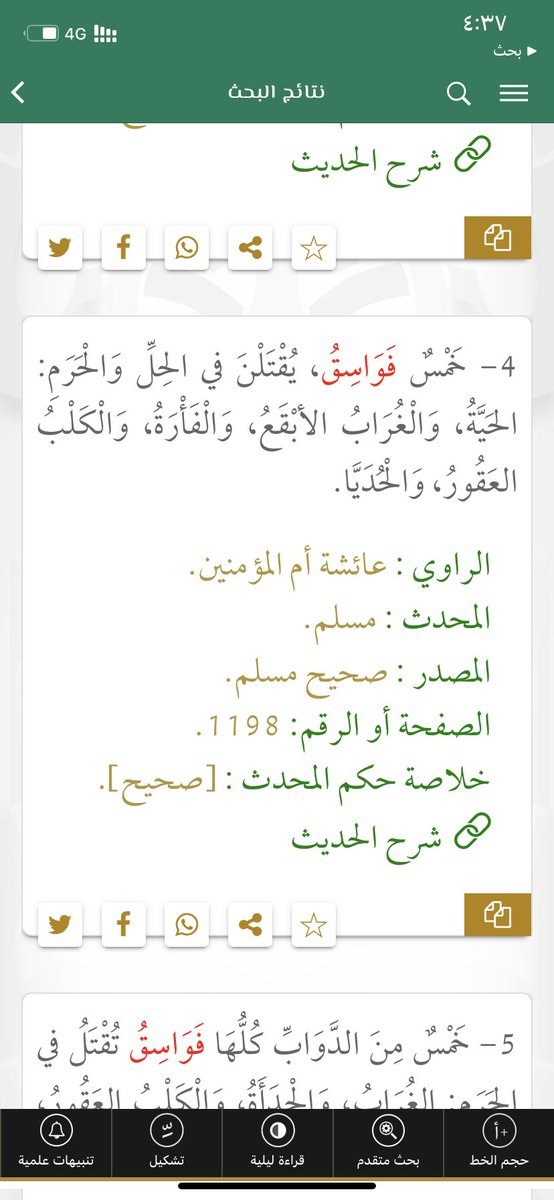 4G ٤:٣٧
بحث
نتائج البحث
شرح الحديث
4- خَمْسٌ فَوَاسِقُ، يُقْتَلْنَ في الحِلِّ وَالْحَرَمِ:
الحَيَّةُ، وَالْغُرَابُ الأبْقَعُ، وَالْفَأْرَةُ، وَالْكَلْبُ
العَقُورُ، وَالْحُدَيَّا.
الراوي : عائشة أم المؤمنين.
المحدث : مسلم.
المصدر : صحيح مسلم.
الصفحة أو الرقم: 1198.
خلاصة حكم المحدث : [صحيح].
شرح الحديث
5- خَمْسٌ مِنَ الدَّوَابِّ كُلُّهَا فَوَاسِقُ تُقْتَلُ في
الحَرَمِ: الغُرَابُ، وَالْحِدَأَةُ، وَالْكَلْبُ العَقُورُ،
حجم الخط
بحث متقدم
قراءة ليلية
تشكيل
تنبيهات علمية